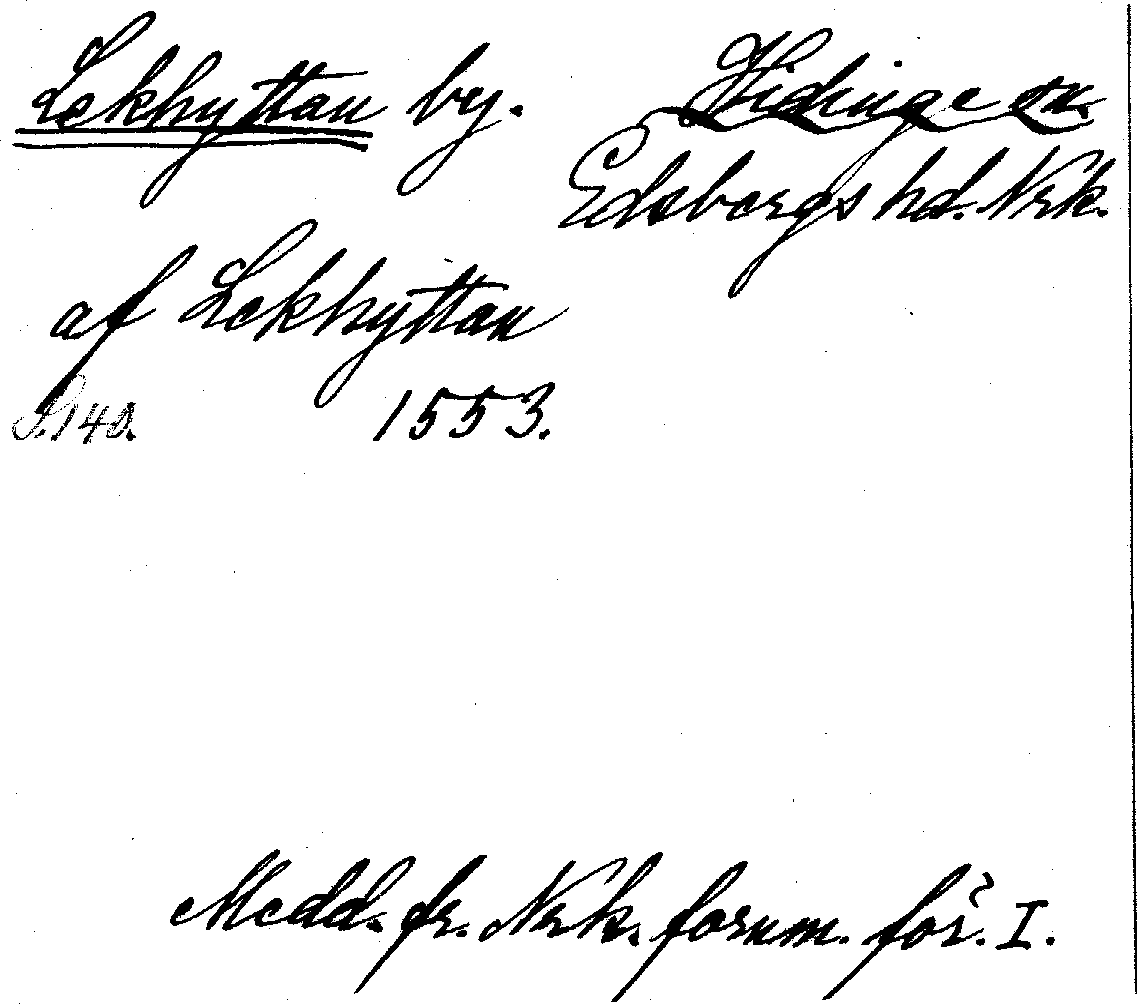 Lekhyttan by. Hidinge sn.
Edsbergs hd. Nrk.
af Lekhyttan
S. 140. 1553.
Medd. fr. Nrk. fornm.för. I.